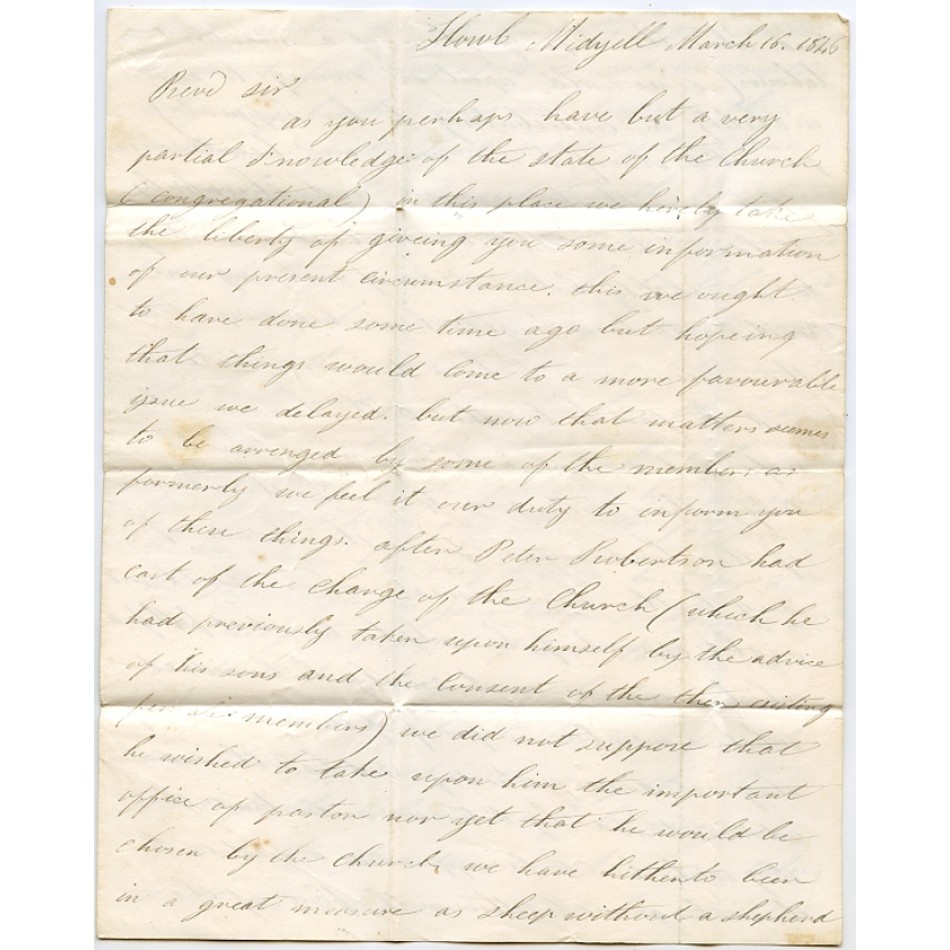 Howl Midyell March 16. 1846
Revd sir
as you perhaps have but a very
partial knowledge of the state of the Church
(congregational) in this place we hereby take
the liberty of giveing you some information
of our present circumstance. this we ought
to have done some time ago but hopeing
that things would come to a more favourable
issue we delayed. but now that matters seemes
to be arrenged by some of the members as
formerly we feel it our duty to inform you
of these things. after Peter Robertson had
cast of the charge of the Church (which he
had previously taken upon himself by the advice
of his sons and the consent of the then existing
members) we did not suppose that
he wished to take upon him the important
office of pastor nor yet that he would be
chosen by the church, we have hitherto been
in a great measure as sheep without a shepherd